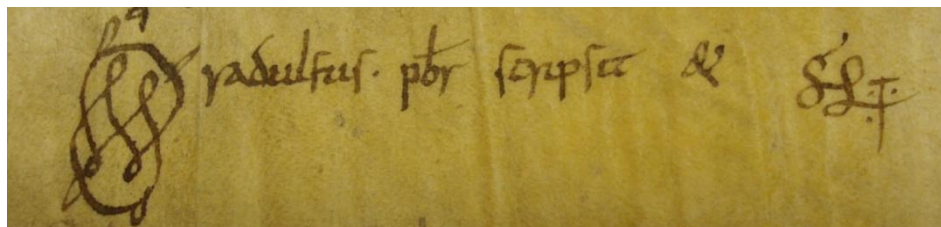 radulfus. pbr scripsit &